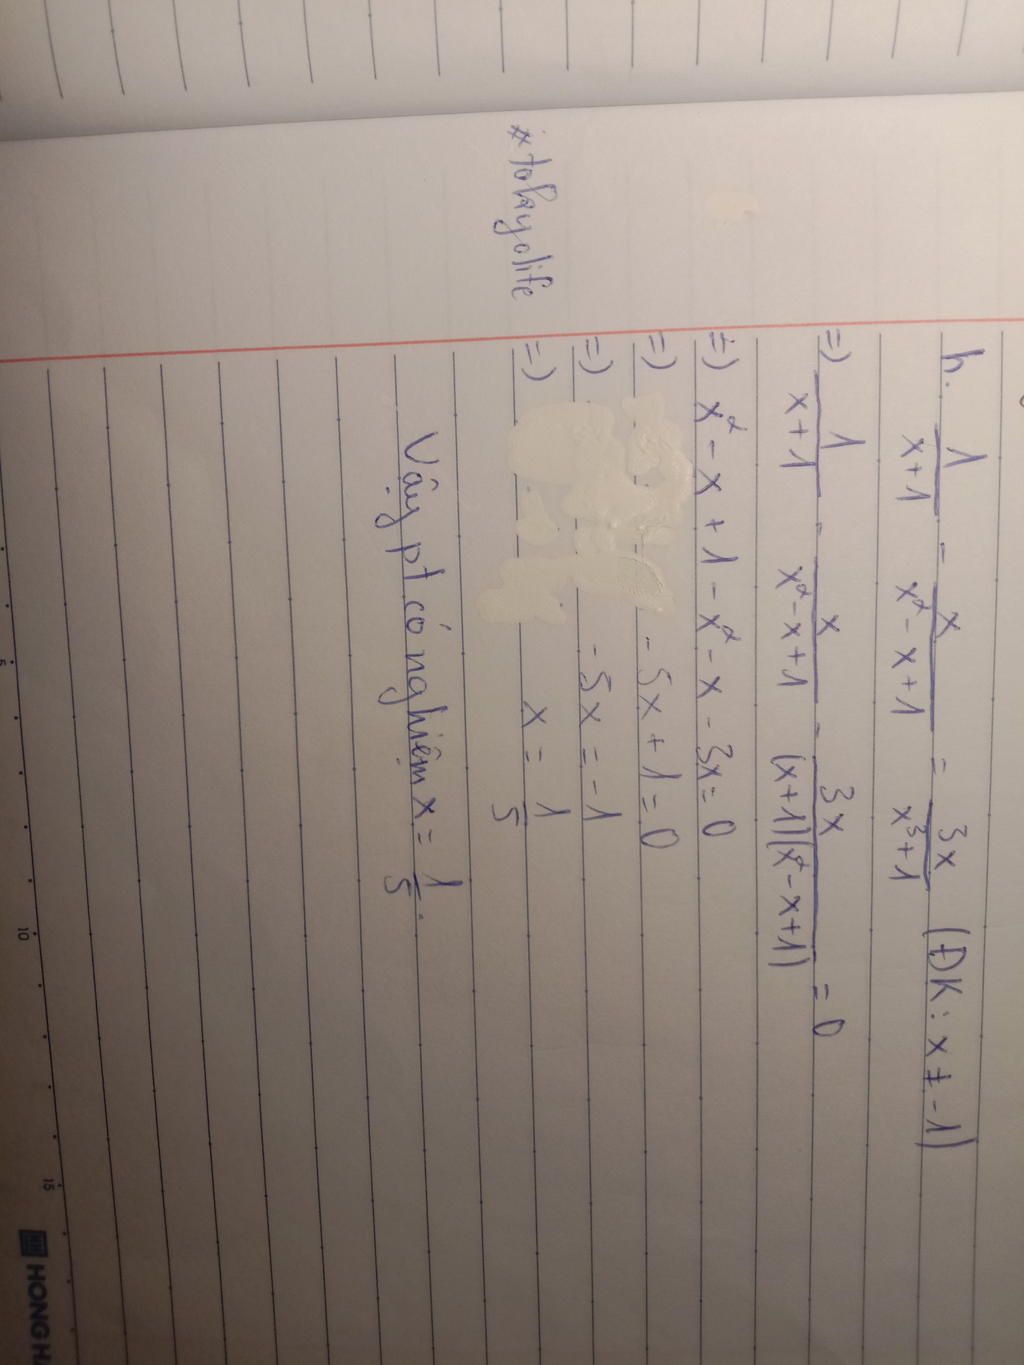 h. 1/(x+1) - x/(x² - x+1) = 3x/(x³+1) (ĐK: x ≠ -1)
=) 1/(x+1) - x/(x² - x+1) - 3x/((x+1)(x² - x+1)) = 0
=) x² - x + 1 - x² - x - 3x = 0
=) - 5x + 1 = 0
=) - 5x = - 1
=) x = 1/5
Vậy pt có nghiệm x = 1/5.
5
10
15
HH HONG H